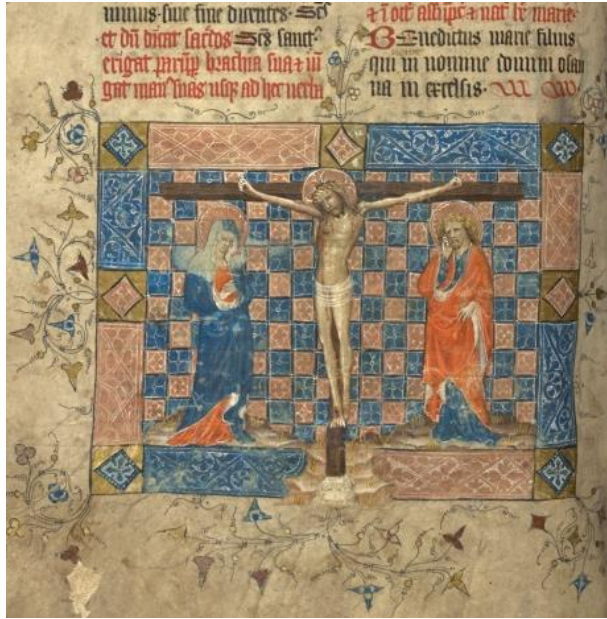 minus· sine fine dicentes· Scs
et dū dicat sacdos Scs sanct᾽
erigat parūp brachia sua ⁊ iū
gat man᾽ suas usq; ad hec verba
⁊ ī oct᾽ assūpc᾽ ⁊ nat᾽ be marie·
Benedictus marie filius
qui in nomine domini osan
na in excelsis·